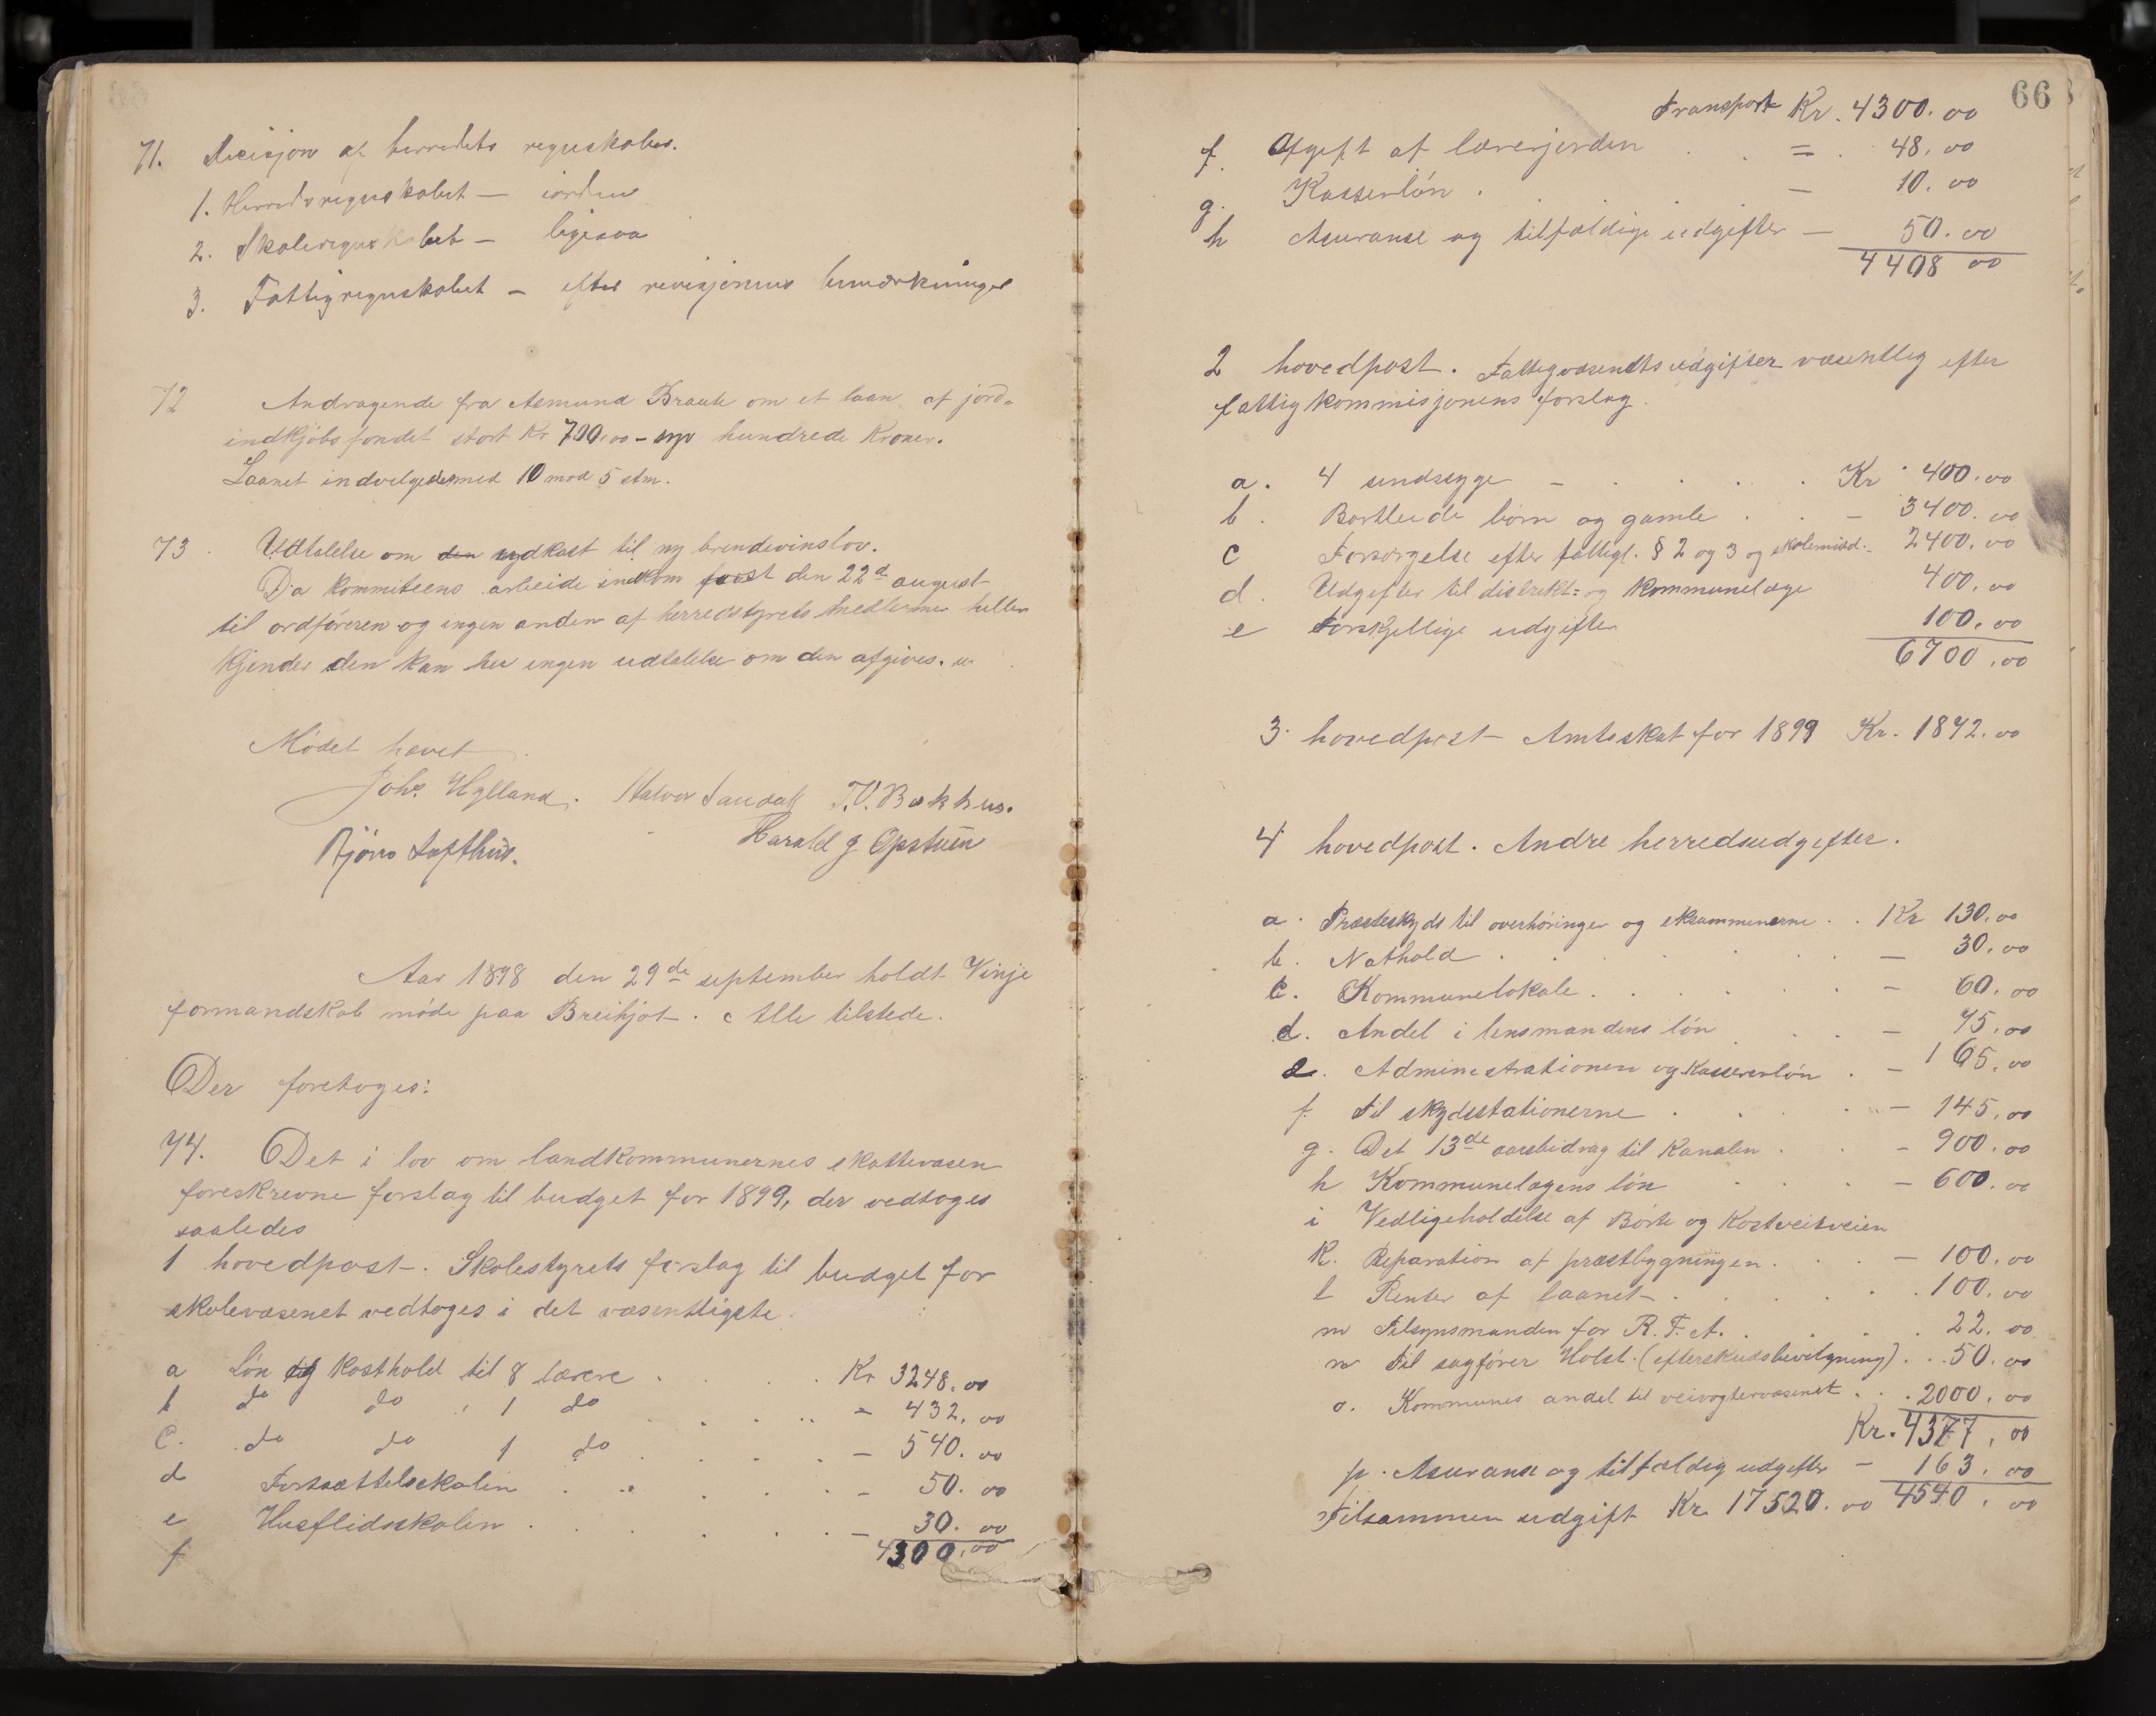 71. Decisjon af herredets regnskaber.
1. Herredsregnskabet — iorden
2. Skoleregnskabet — ligesaa
3. Fattigregnskabet — efter revisjonens bemærkninger
72 Andragende fra Asmund Braate om et laan af jord-
indkjøbsfondet stort Kr 700.00 - syv hundrede Kroner.
Laanet indvilgedes med 10 mod 5 stm.
73. Udtalelse om den udkast til ny brendevinslov.
Da kommiteens arbeide indkom først den 22d august
til ordføreren og ingen anden af herredstyrets medlemer heller
kjender den kan her ingen udtalelse om den afgives.
Mødet hævet
Johs Hylland. Halvor Sandok T.V. Bakhus.
Bjørn Lofthus. Harald g Opstuen
Aar 1898 den 29de september holdt Vinje
formandskab møde paa Breihjot. Alle tilstede.
Der foretoges:
74. Det i lov om landkommunernes skattevæsen
foreskrevne forslag til budget for 1899, der vedtoges
saaledes
1 hovedpost. Skolestyrets forslag til budget for
skolevæsenet vedtoges i det væsentligste.
a Løn og kosthold til 8 lærere . . . . Kr 3248.00
b do do 1 do . . . . = 432.00
c. do do 1 do . . . . — 540.00
d Fortsættelsskolen . . . . . - 50.00
e Husflidsskolen . . . . . . — 30.00
f 4300.00
66
Transport Kr. 4300.00
f. Afgift af lærerjorden . . = . 48.00
g. Kasserløn . — 10.00
h Asuranse og tilfældige udgifter — 50.00
4408 00
2 hovedpost. Fattigvæsendts udgifter væsentlig efter
fattigkommisjonens forslag.
a. 4 sindssyge — . . . . Kr. 400.00
b. Bortleide børn og gamle . . — 3400.00
c Forsørgelse efter fattigl. § 2 og 3 og skolemidd. - 2400.00
d. Udgifter til distrikt= og kommunelæge 400.00
e Forskjellige udgifter 100.00
6700.00
3. hovedpost — Amtsskat for 1899 Kr. 1872.00
4 hovedpost. Andre herredsudgifter.
a. Præsteskyds til overhøringer og eksammenerne . . Kr 130.00
b. Nothold . . . . . . . — 30.00
c. Kommunelokale . . . . . . — 60.00
d. Andel i lensmandens løn . . — 75.00
e. Administrationen og Kassererløn . — 165.00
f. Til skydsstationerne . . . . — 145.00
g. Det 13de aarsbidrag til Kanalen . . - 900.00
h Kommunelægens løn . . . . — 600.00
i Vedligeholdelse af Børte og Kostveitveien
k. Reparation af præstbygningen . . . — 100.00
l Renter af laanet . . . . . . 100.00
m Tilsynsmanden for R.T.A. . . . . 22.00
n Til sagfører Holst. (efterskudsbevilgning) . . 50.00
o. Kommunes andel til veivogtervæsenet . . . 2000.00
Kr. 4377.00
p. Asuranse og tilfældig udgifter — 163.00
Tilsammen udgift Kr. 17520.00 4540.00